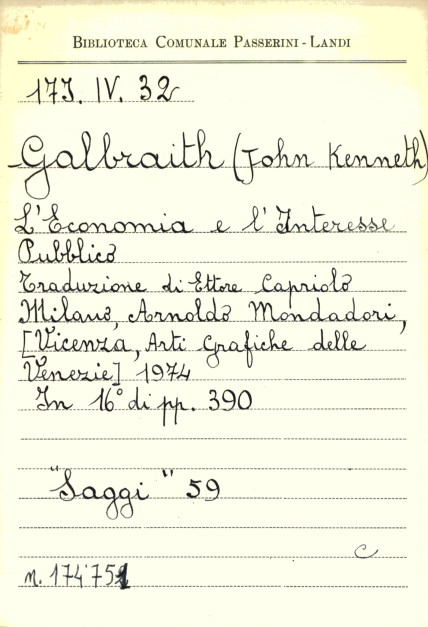 BIBLIOTECA COMUNALE PASSERINI - LANDI
173. IV. 32
Galbraith (John Kenneth)
L'Economia e l'Interesse
Pubblico
Traduzione di Ettore Capriolo
Milano, Arnoldo Mondadori,
[Vicenza, Arti Grafiche delle
Venezie] 1974
In 16° di pp. 390
"Saggi" 59
C
n. 174'751